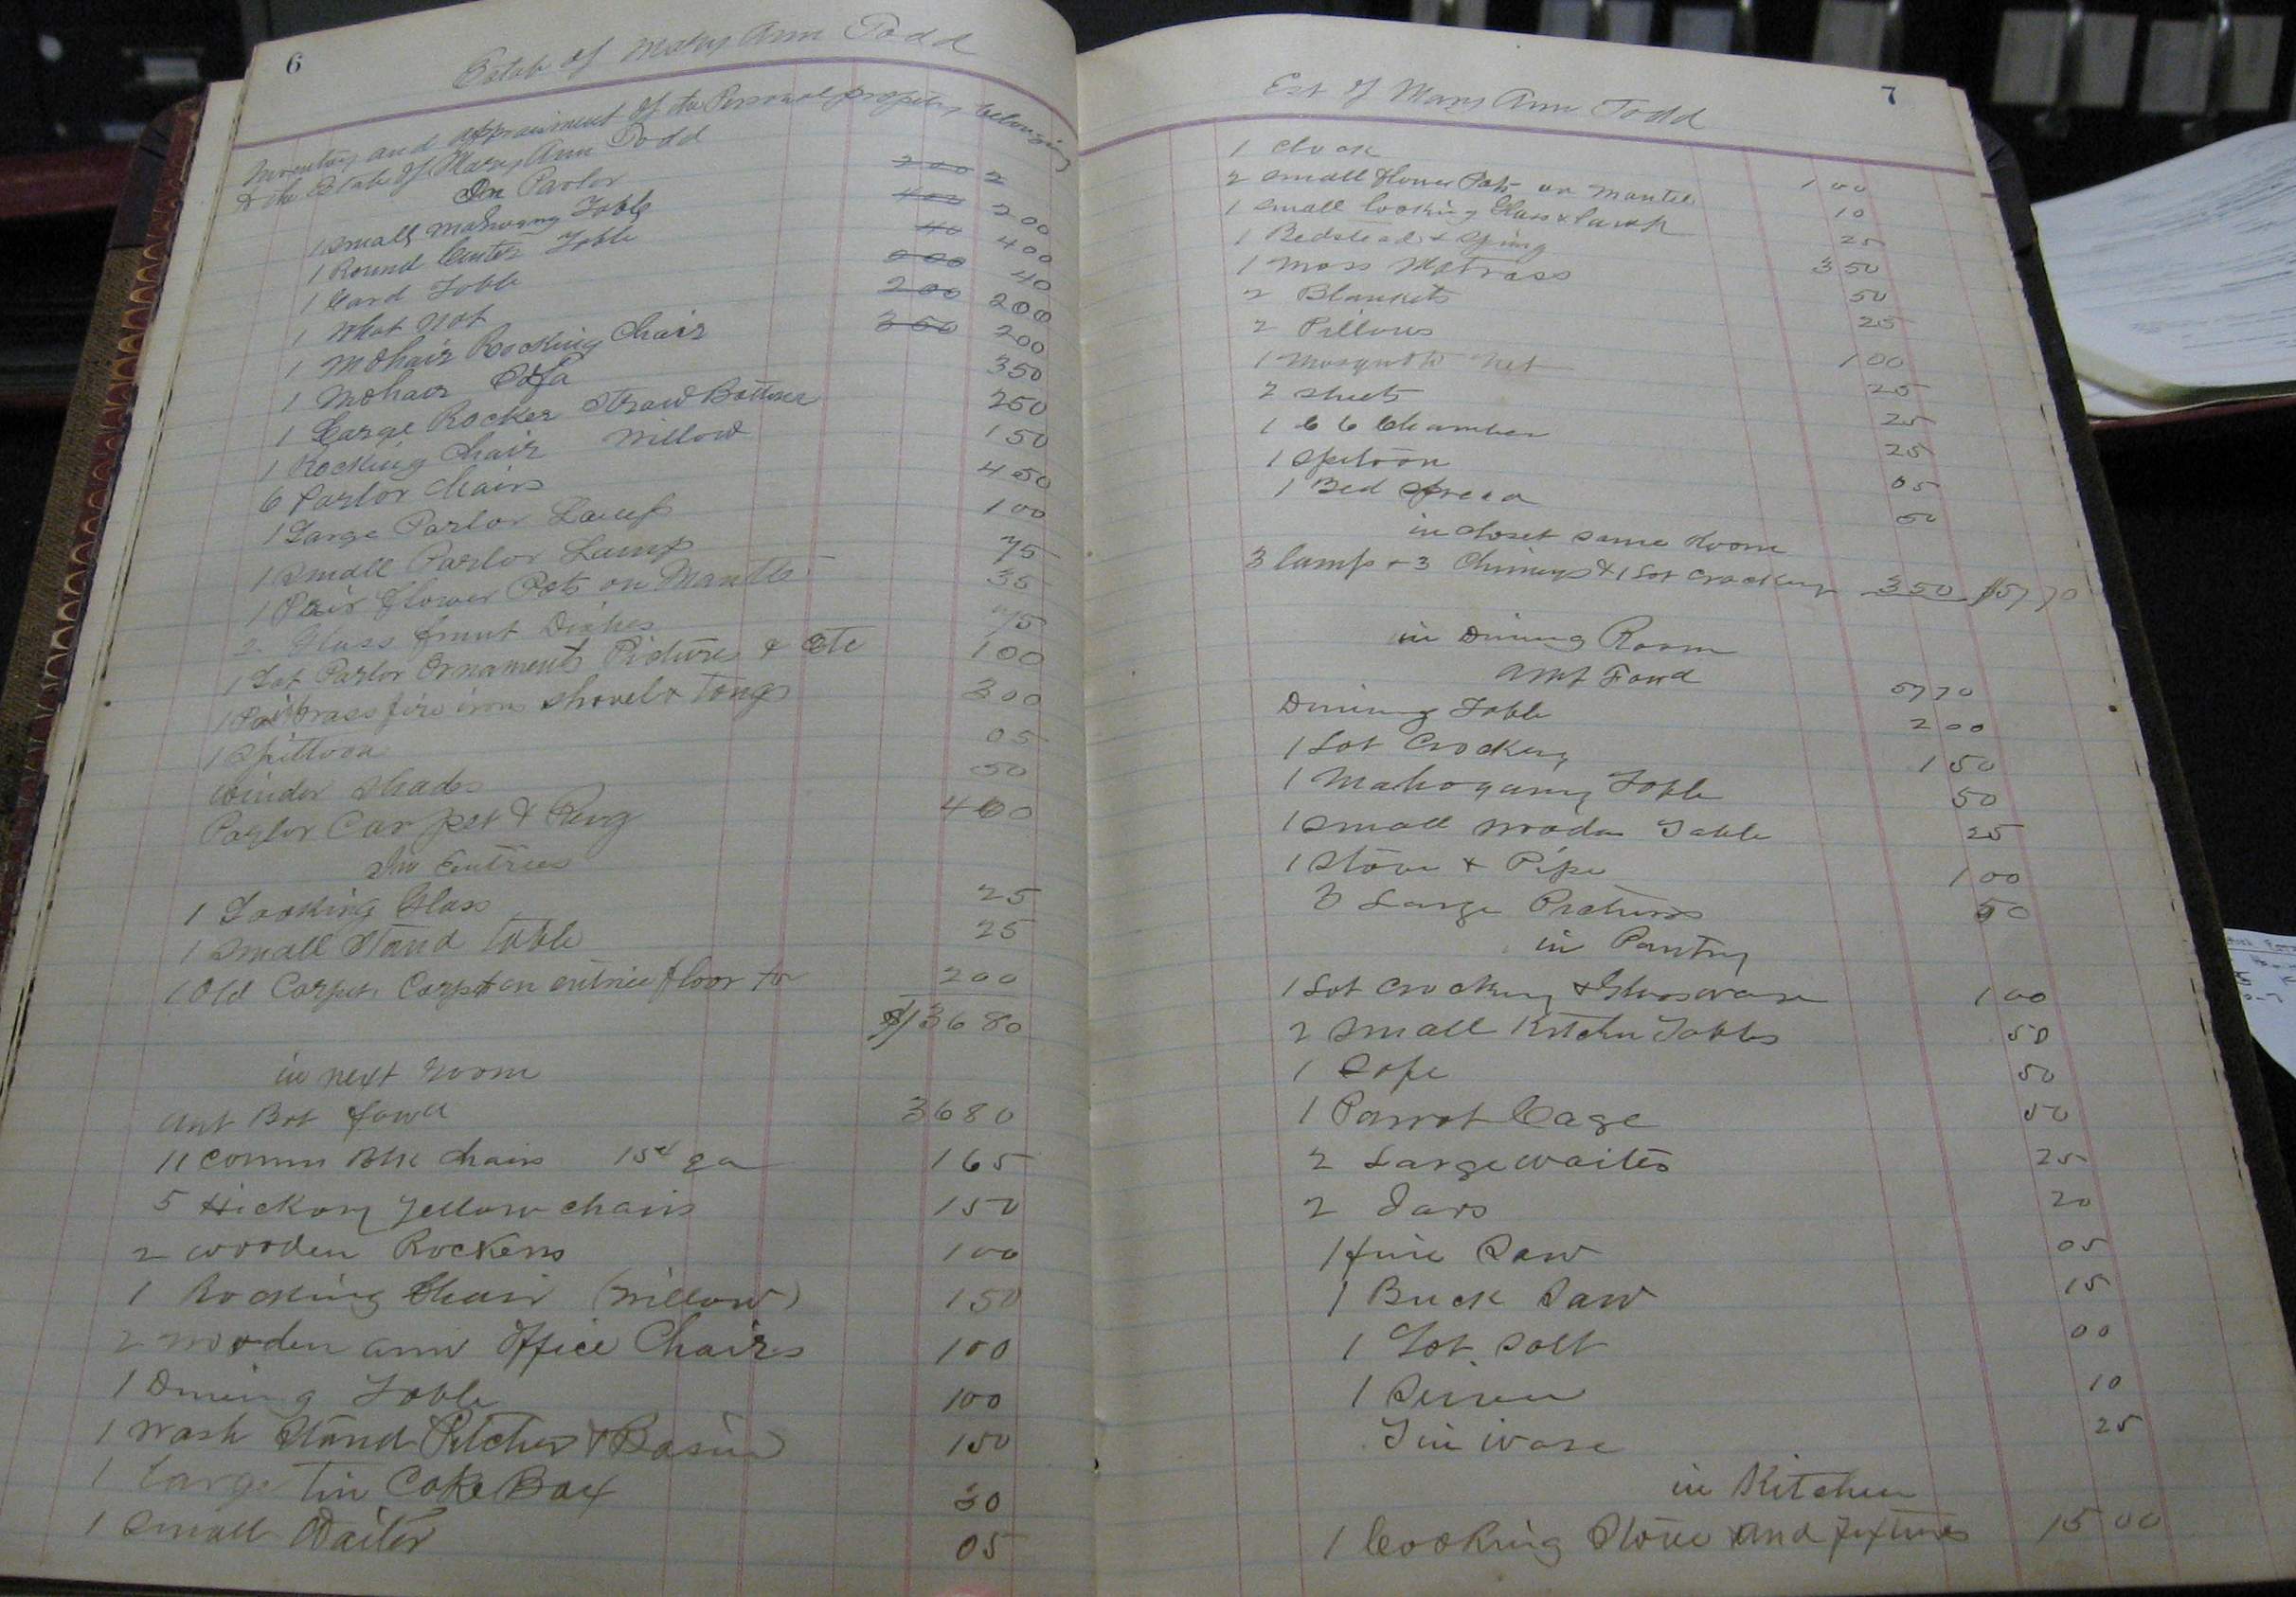 6
Estate of Mary Ann Todd
Inventory and appraisment of the Personal propity belonging
to the Estate of Mary Ann Todd
In Parlor 2
1 Small Mahogany Table 200 200
1 Round Center Table 400 400
1 Card Table 40 40
1 What Not 200 200
1 Mohair Rocking Chair 200 200
1 Mohair Sofa 350 350
1 Large Rocker Straw Bottom 250
1 Rocking Chair Willow 150
6 Parlor Chairs 450
1 Large Parlor Lamp 100
1 Small Parlor Lamp 75
1 Pair Flower Pots on Mantle 35
2 Glass fruit Dishes 75
1 Lot Parlor Ornaments Pictures & Etc 100
1 Pair brass fire irons Shovel & Tongs 300
1 Spittoon 05
Winder Shades 50
Parlor Carpet & Rug 400
In Entries
1 Looking Glass 25
1 Small Stand table 25
1 Old Carpet Carpt on entrie floor 200
$36 80
in next room
Amt Brt fowd 3680
11 Comm Blk Chairs 15¢ ea 165
5 Hickory Yellow chairs 150
2 wooden Rockers 100
1 Rocking Chair (Willow) 150
2 Wooden arm Office Chairs 100
1 Dining Table 100
1 Wash Stand Pitcher & Basin 150
1 Large Tin Cake Box 30
1 Small Waiter 05
7
Est of Mary Ann Todd
1 Clock 100
2 Small flower Pots on Mantel 10
1 Small looking Glass & lamp 25
1 Bedstead & Spring 350
1 Moss Matrass 50
2 Blankets 25
2 Pillows 100
1 Mosquito Net 25
2 Sheets 25
1 C C Chamber 25
1 Spitoon 05
1 Bed Spread 50
in closet same room
3 lamps & 3 Chimneys & 1 Lot Crockery 350 $57 70
in Dining Room
Amt Fowd 5770
Dining Table 200
1 Lot Crockery 150
1 Mahogany Table 50
1 Small wooden Table 25
1 Stove & Pipe 100
3 Large Pictures 50
in Pantry
1 Lot Crockery & Glassware 100
2 Small Kitchen Tables 50
1 Safe 50
1 Parrot Cage 50
2 Large waiters 25
2 Jars 20
1 fine Saw 05
1 Buck Saw 15
1 Lot Salt 00
1 10
Tin ware 25
in Kitchen
1 Cooking Stove and fixtures 1500